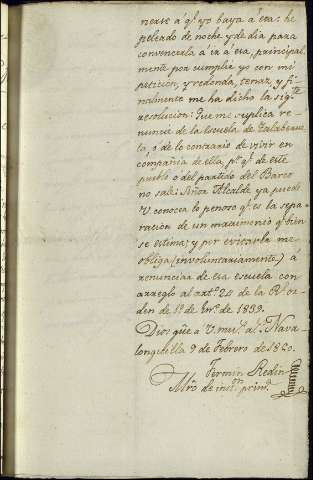 nerse á q.e yo baya á esa: he
peleado de noche y de dia para
convencerla á ir á esa, principal
mente por cumplir yo con mi
peticion, y redonda, tenaz, y fi-
nalmente me ha dicho la sig.te
resolucion: Que me suplica re-
nuncie de la Escuela de
ta, ó de lo contrario de vivir en
compañia de ella, p.r q.e de este
pueblo ó del partido del Barco
no sale: Señor Alcalde ya puede
V. conocer lo penoso q.e es la sepa-
racion de un matrimonio q.e bien
se estima; y por evitarla me
obliga (involuntariamente) á
renunciar de esa escuela con
arreglo al art.o 24 de la R.l or-
den de 1.o de 1839.
Dios gũe á V. mu.s a.s Nava-
longuilla 9 de Febrero de 1840.
Fermin Redin
Mro de inst.n prim.a